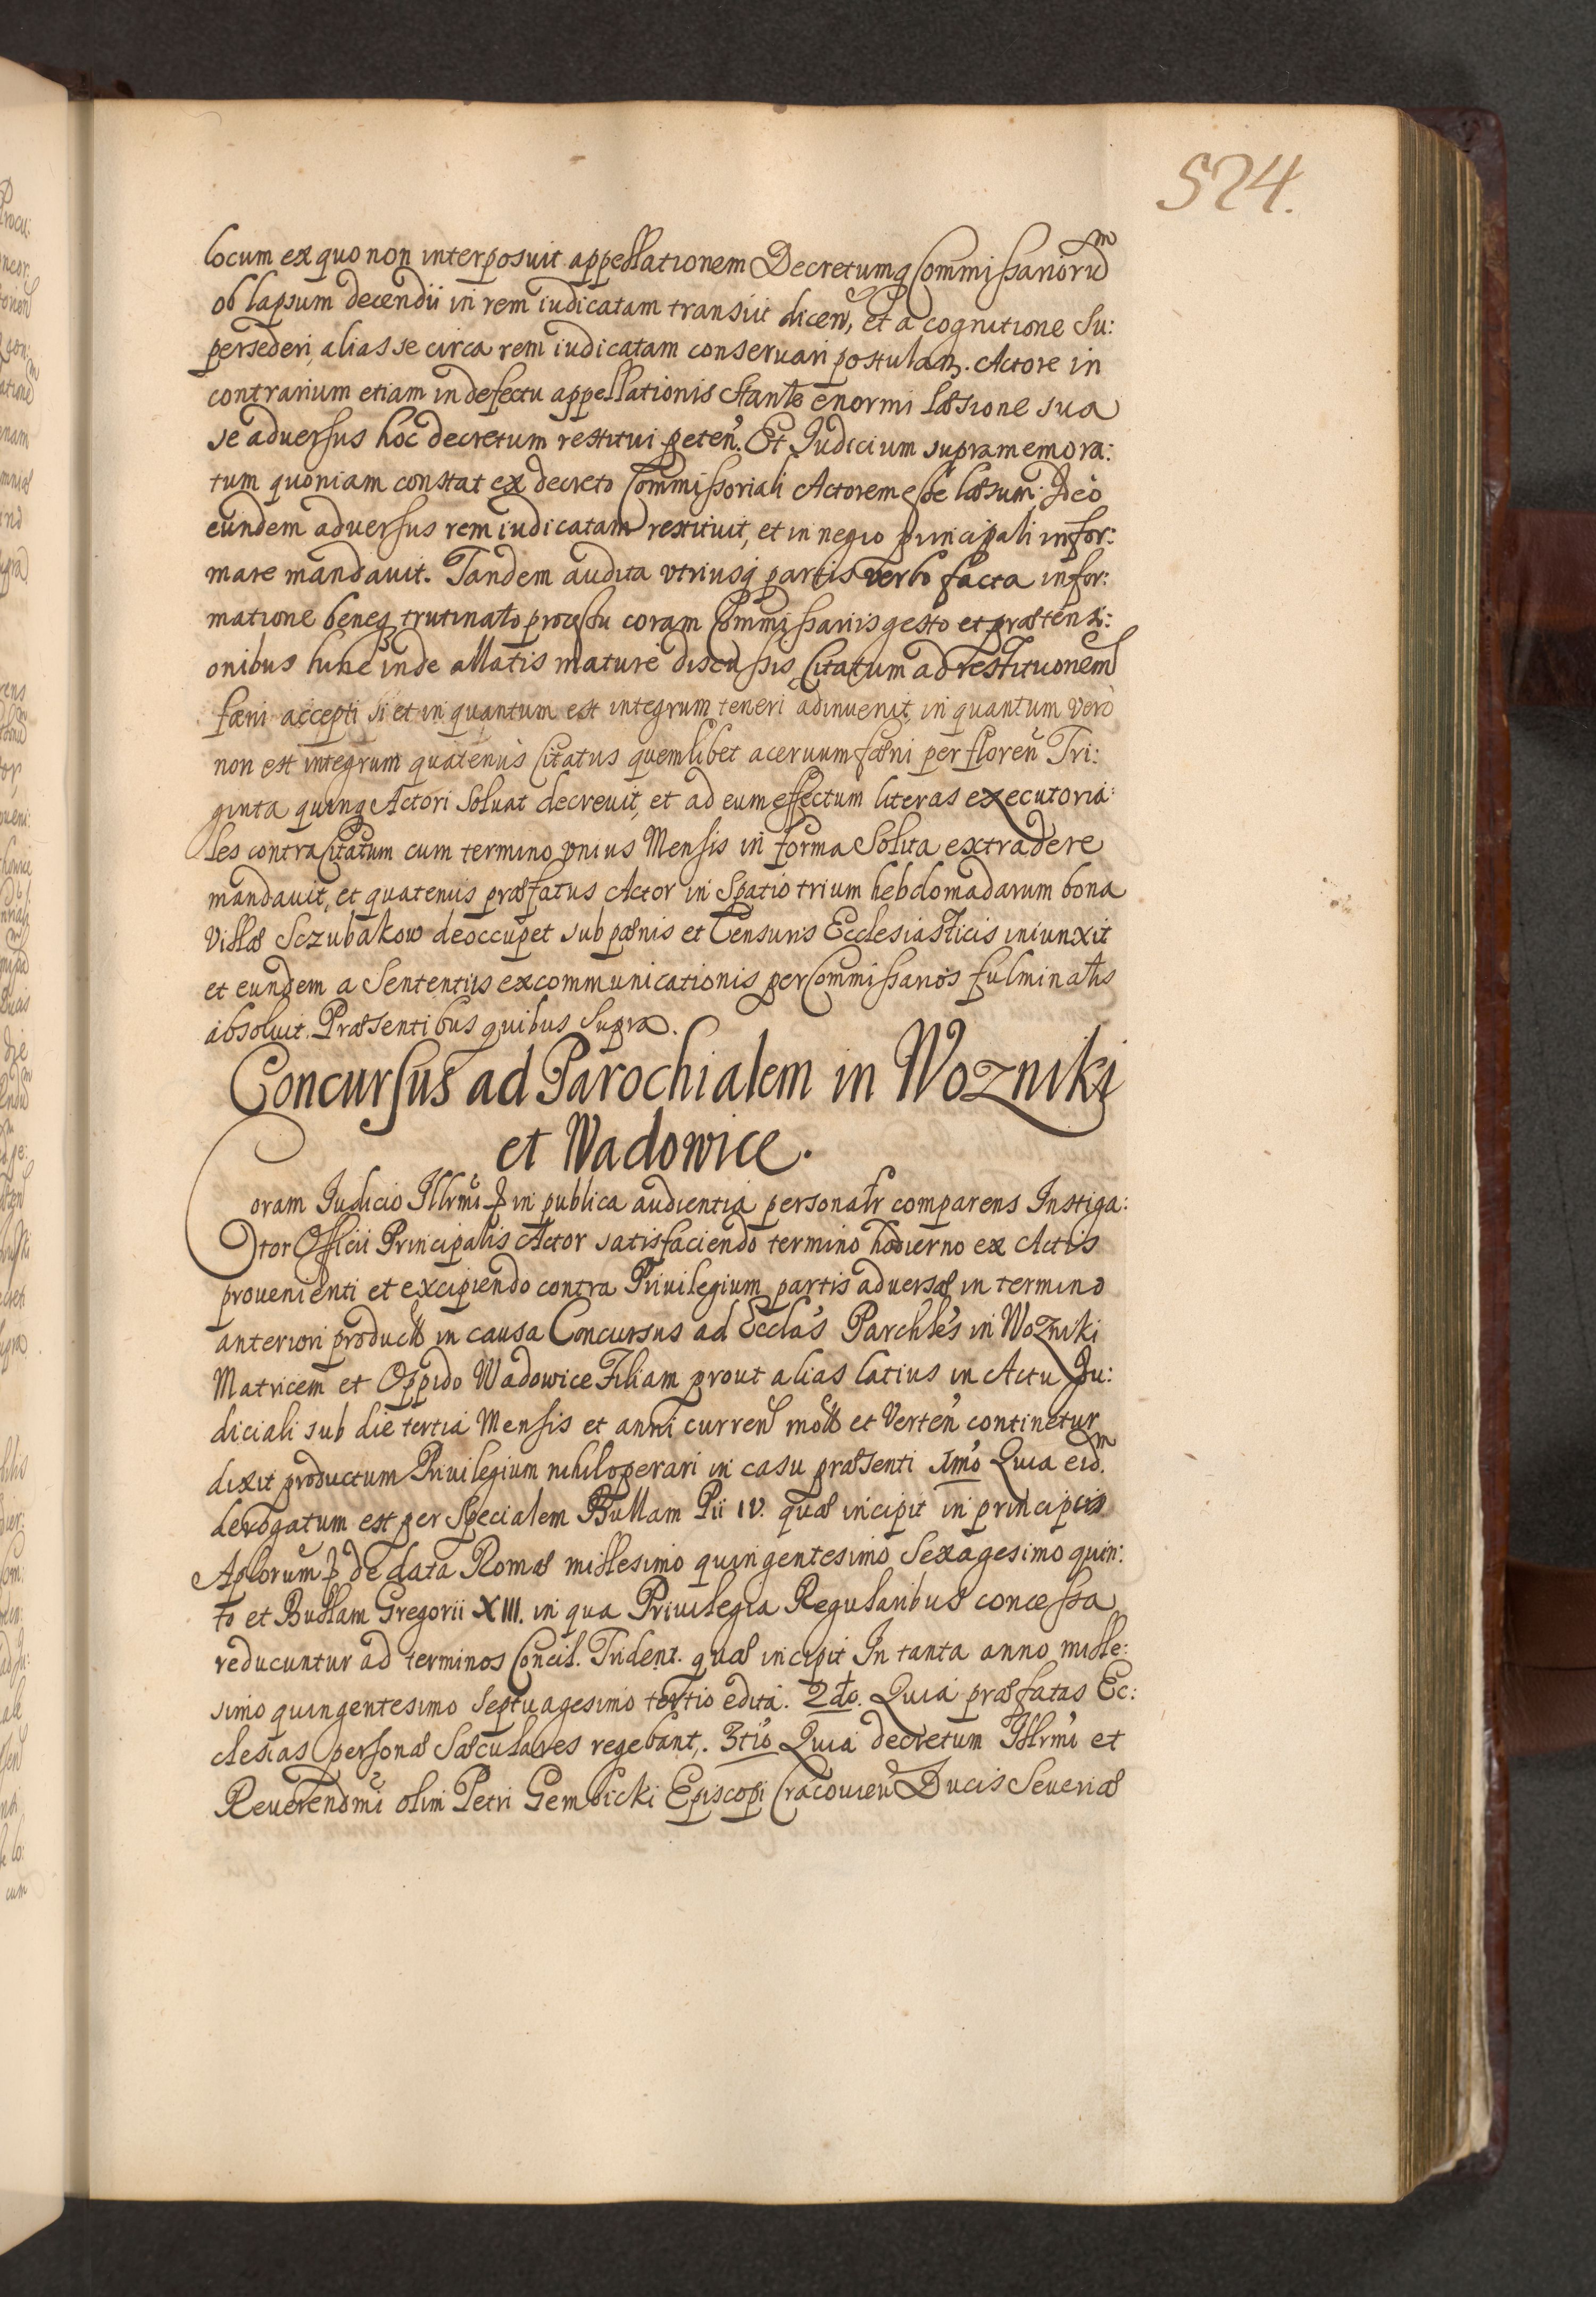 524.
locum ex quo non interposuit appellationem Decretumq Commissarioru͂m
ob lapsum decendii in rem iudicatam transiit dicen͂, et a cognitione Su:
persederi, alias se circa rem iudicatam conseruari postulan͂. Actore in
contrarium etiam in defectu appellationis Stante enormi læsione sua
se aduersus hoc decretum restitui peten͂. Et Judicium supramemora:
tum quoniam constat ex decreto Commissoriali Actorem esse læsum. Ideò
eundem aduersus rem iudicatam restituit, et in negio principali infor:
mare mandauit. Tandem audita vtriusq partis verbo facta infor:
matione beneq trutinato processu coram Commissariis gesto et prætensi:
onibus hinc inde allatis mature discussis Citatum ad restitutionem
fæni accepti si et in quantum est integrum teneri adinuenit, in quantum verò
non est integrum quatenus Citatus quemlibet aceruum fæni per floren͂ Tri:
ginta quinq Actori Soluat decreuit, et ad eum effectum literas executoria:
les contra Citatum cum termino vnius Mensis in forma Solita extradere
mandauit, et quatenus præfatus Actor in Spatio trium hebdomadarum bona
Villæ Sczubakow deoccupet sub pænis et Censuris Ecclesiasticis iniunxit
et eundem a Sententiis excommunicationis per Commissarios fulminatis
absoluit. Præsentibus quibus Supra.
Concursus ad Parochialem in Wozniki
et Wadowice.
Coram Judicio Illrmi in publica audientia personalr comparens Instiga:
tor Officii Principalis Actor satisfaciendo termino hodierno ex Actis
prouenienti et excipiendo contra Priuilegium partis aduersæ in termino
anteriori producto in causa Concursus ad Eccla͂s Parchle͂s in Wozniki
Matricem et Oppido Wadowice Filiam prout alias latius in Actu Ju:
diciali sub die tertia Mensis et anni curren͂ mo͂ et Verten͂ continetur
dixit productum Priuilegium nihil operari in casu præsenti 1mo Quia eid͂m
derogatum est per Specialem Bullam Pii IV. quæ incipit in principis
Aplorum de data Romæ millesimo quingentesimo Sexagesimo quin:
to et Bullam Gregorii XIII. in qua Priuilegia Regularibus concessa
reducuntur ad terminos Concil. Trident. quæ incipit In tanta anno mille:
simo quingentesimo Septuagesimo tertio edita. 2do. Quia præfatas Ec:
clesias personæ Sæculares regebant. 3tiò Quia decretum Illrmi et
Reuerendmi olim Petri Gembicki Episcopi Cracouien͂ Ducis Seueriæ